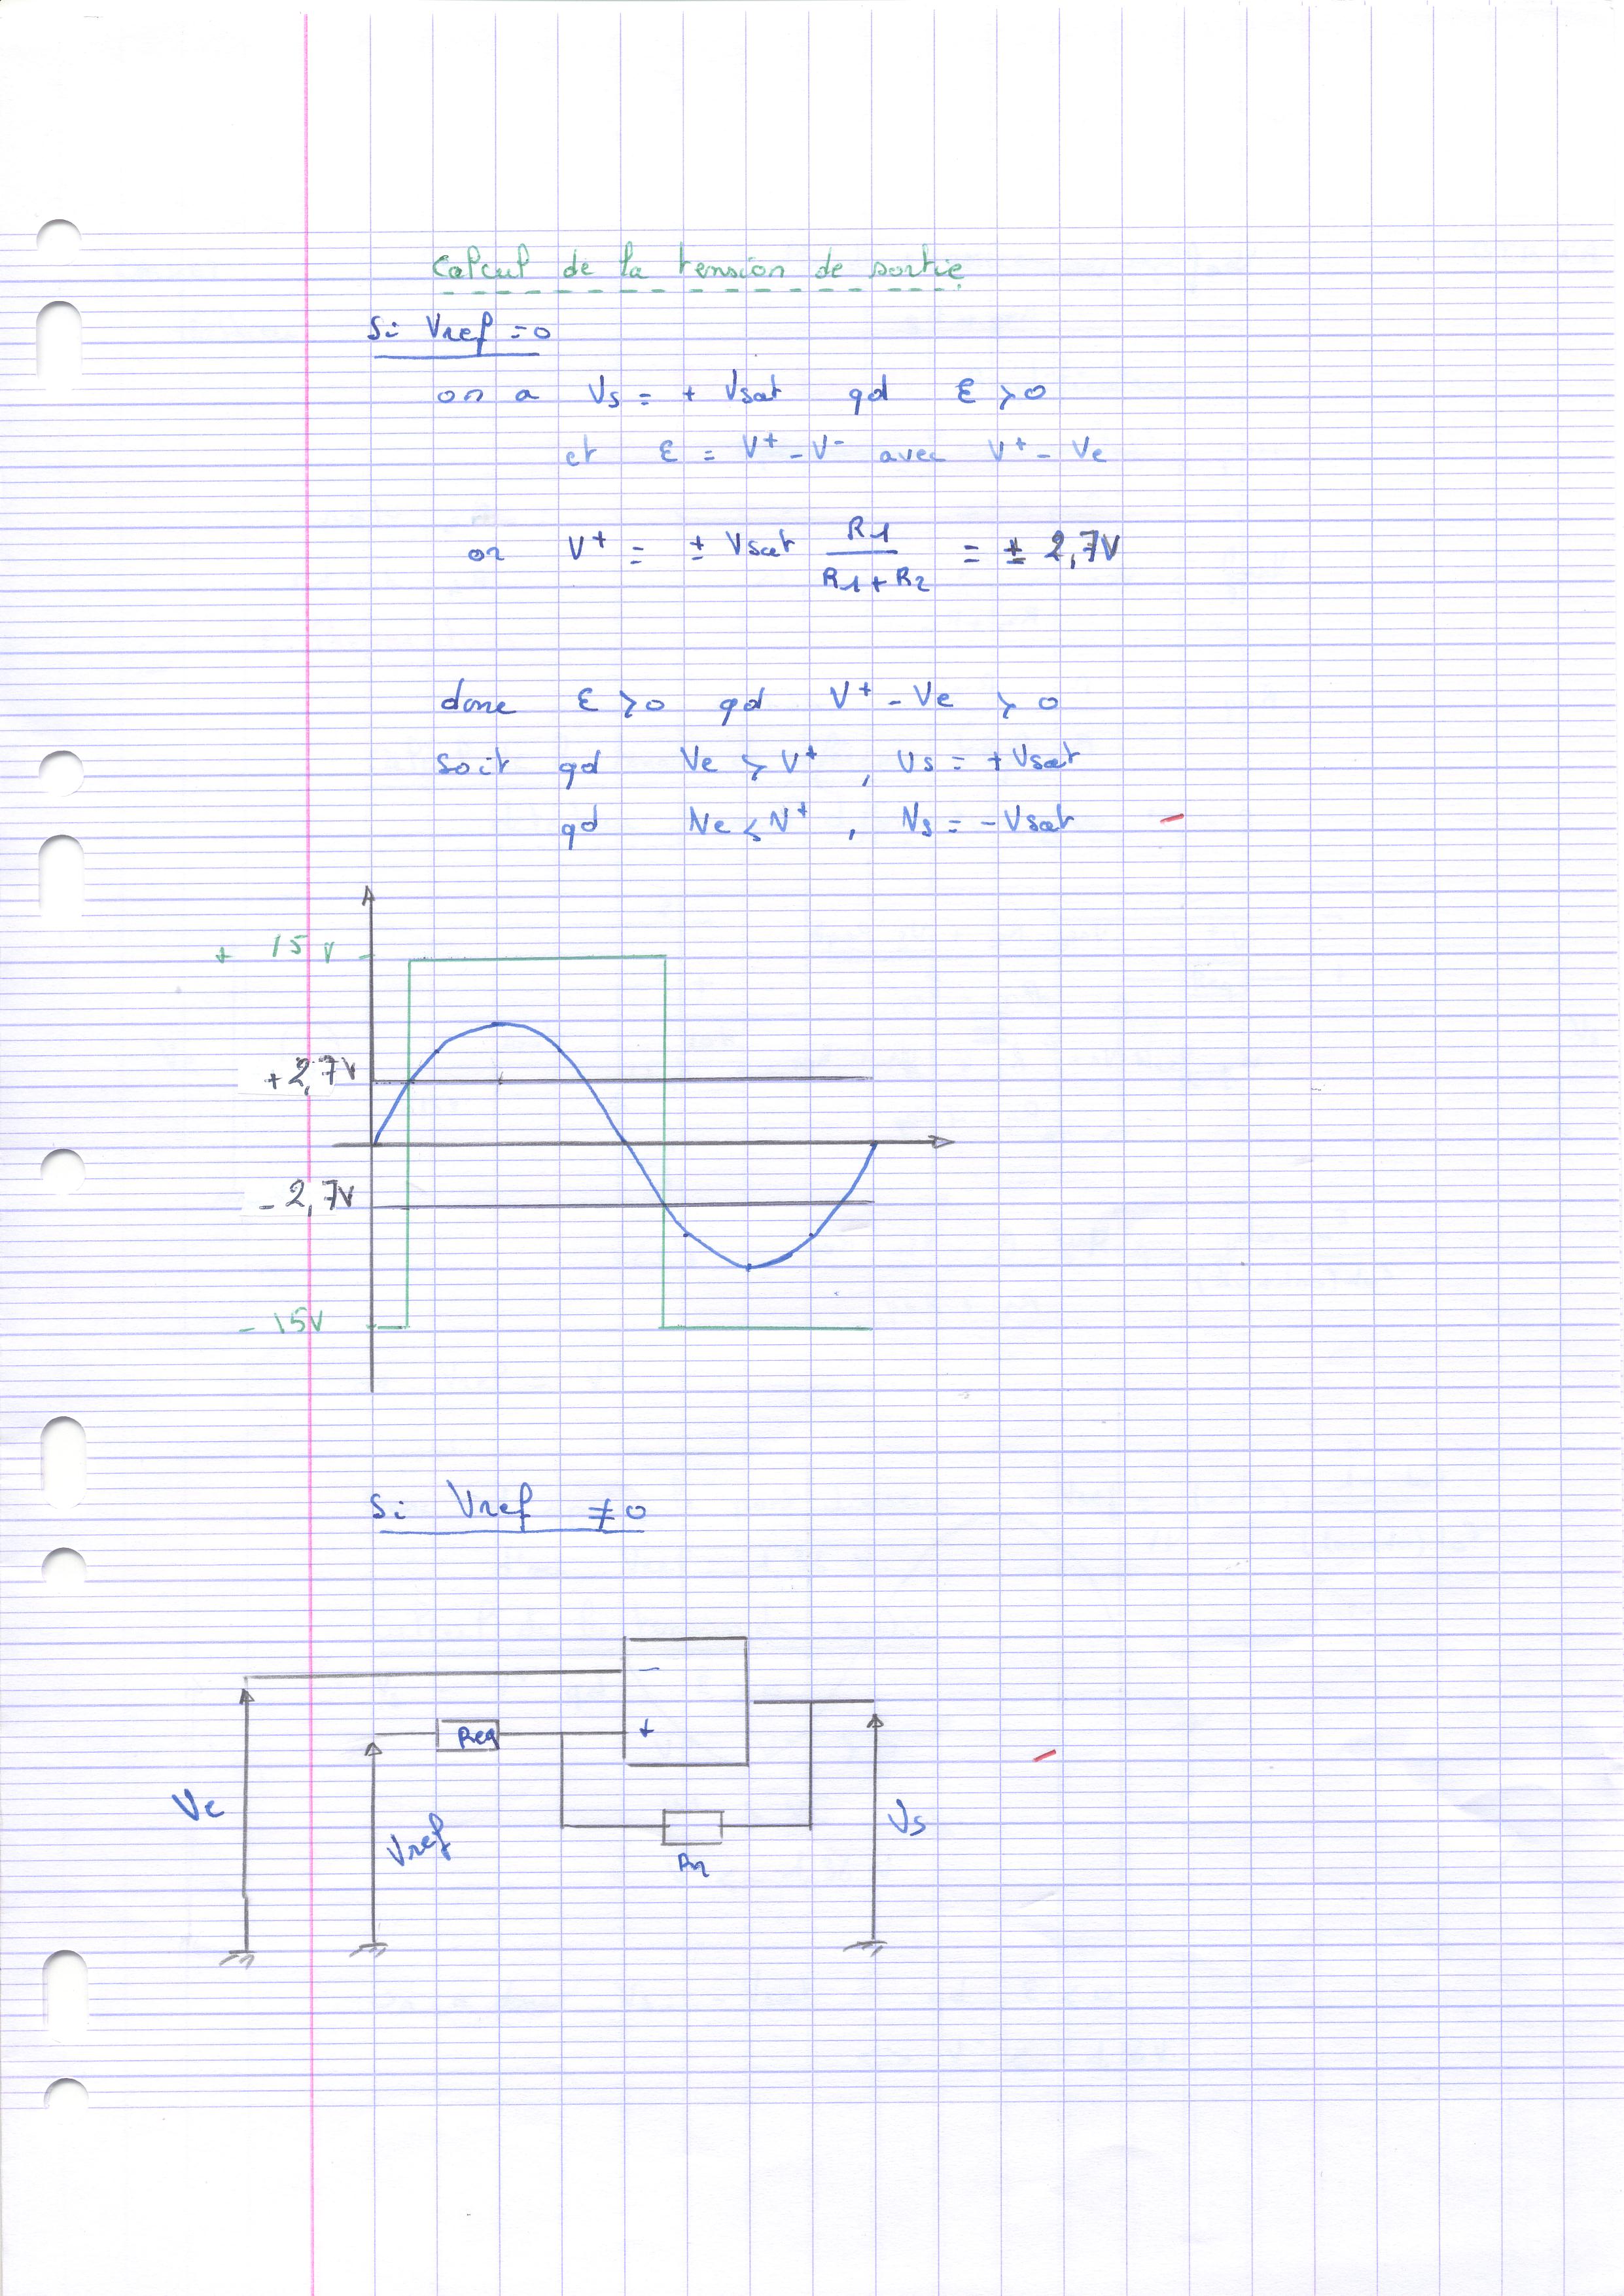 Calcul de la tension de sortie
Si Vref = 0
on a Vs = + Vsat qd ε > 0
et ε = V⁺ - V⁻ avec V⁺ - Ve
or V⁺ = ± Vsat R1 / (R1 + R2) = ± 2,7V
donc ε > 0 qd V⁺ - Ve > 0
soit qd Ve > V⁺ , Vs = + Vsat
qd Ve < V⁺ , Vs = - Vsat
+ 15 V
+2,7V
- 2,7V
- 15V
Si Vref ≠ 0
-
Req
+
Ve
Vref
Vs